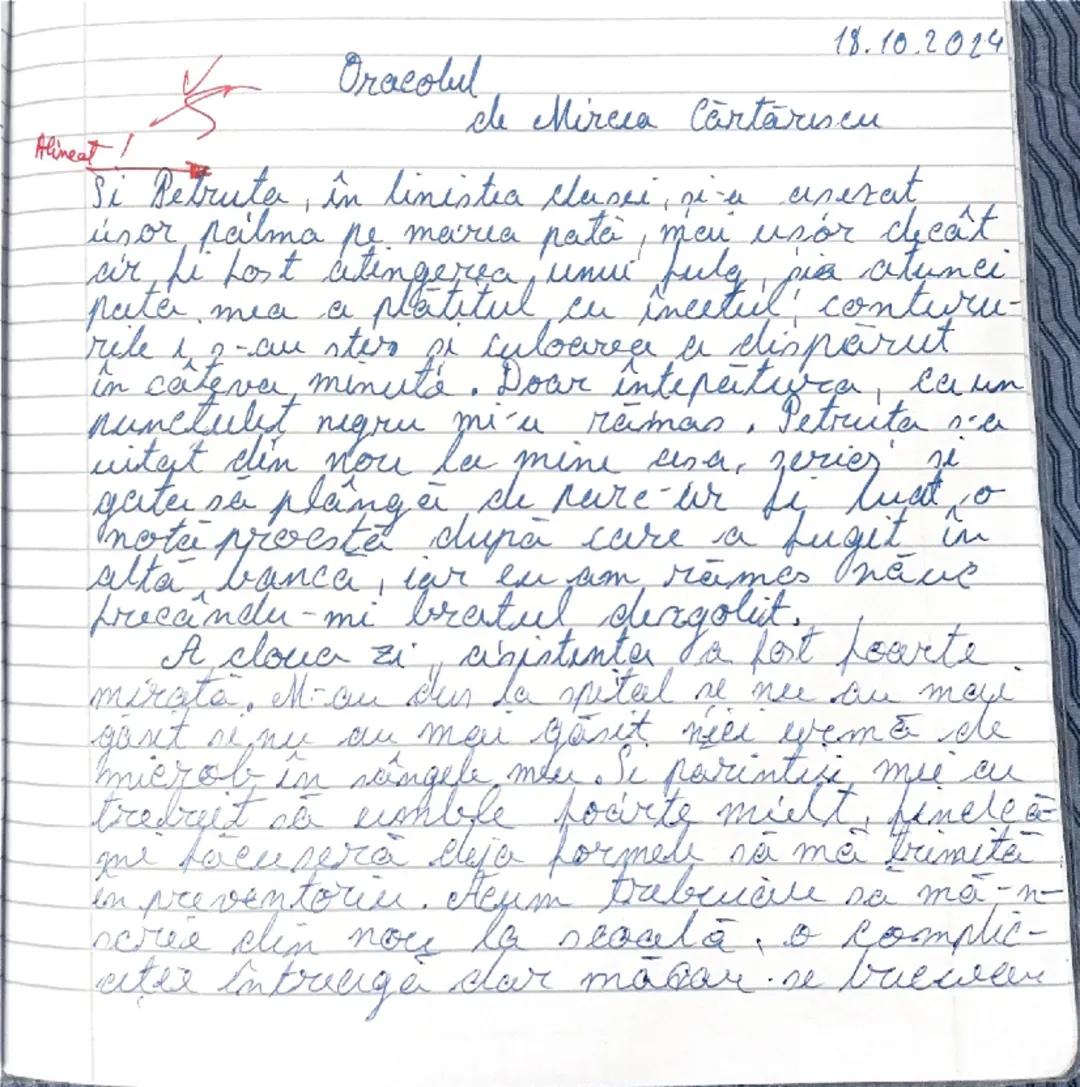 18.10.2024
Oracolul
de Mircea Cărtărescu
Alineat !
Si Petruta, în linistea clasei, si-a asezat
usor palma pe marea pată, mai usor decât
ar fi fost atingerea unui fulg, sia atunci
pata mea a plătitul cu încetul, conturu-
rile i s-au sters si culoarea a dispărut
în câteva minute. Doar întepătura, ca un
punctulet negru mi-a rămas. Petruta s-a
uitat din nou la mine asa, serios si
gata să plângă de parc-ar fi luat o
notă proastă după care a fugit în
altă bancă, iar eu am rămas năuc
frecându-mi bratul dezgolit.
A doua zi, asistenta a fost foarte
mirată. M-au dus la spital si nu au mai
găsit si nu au mai găsit nici urmă de
microb în sângele meu. Si parintii mei au
trebuit să umble foarte mult, findcă-
mi făcuseră deja formele să mă trimită
in preventoriu. Acum trebuiau să mă-n-
scrie din nou la scoală, o complic-
atie întreagă dar măcar se bucurau